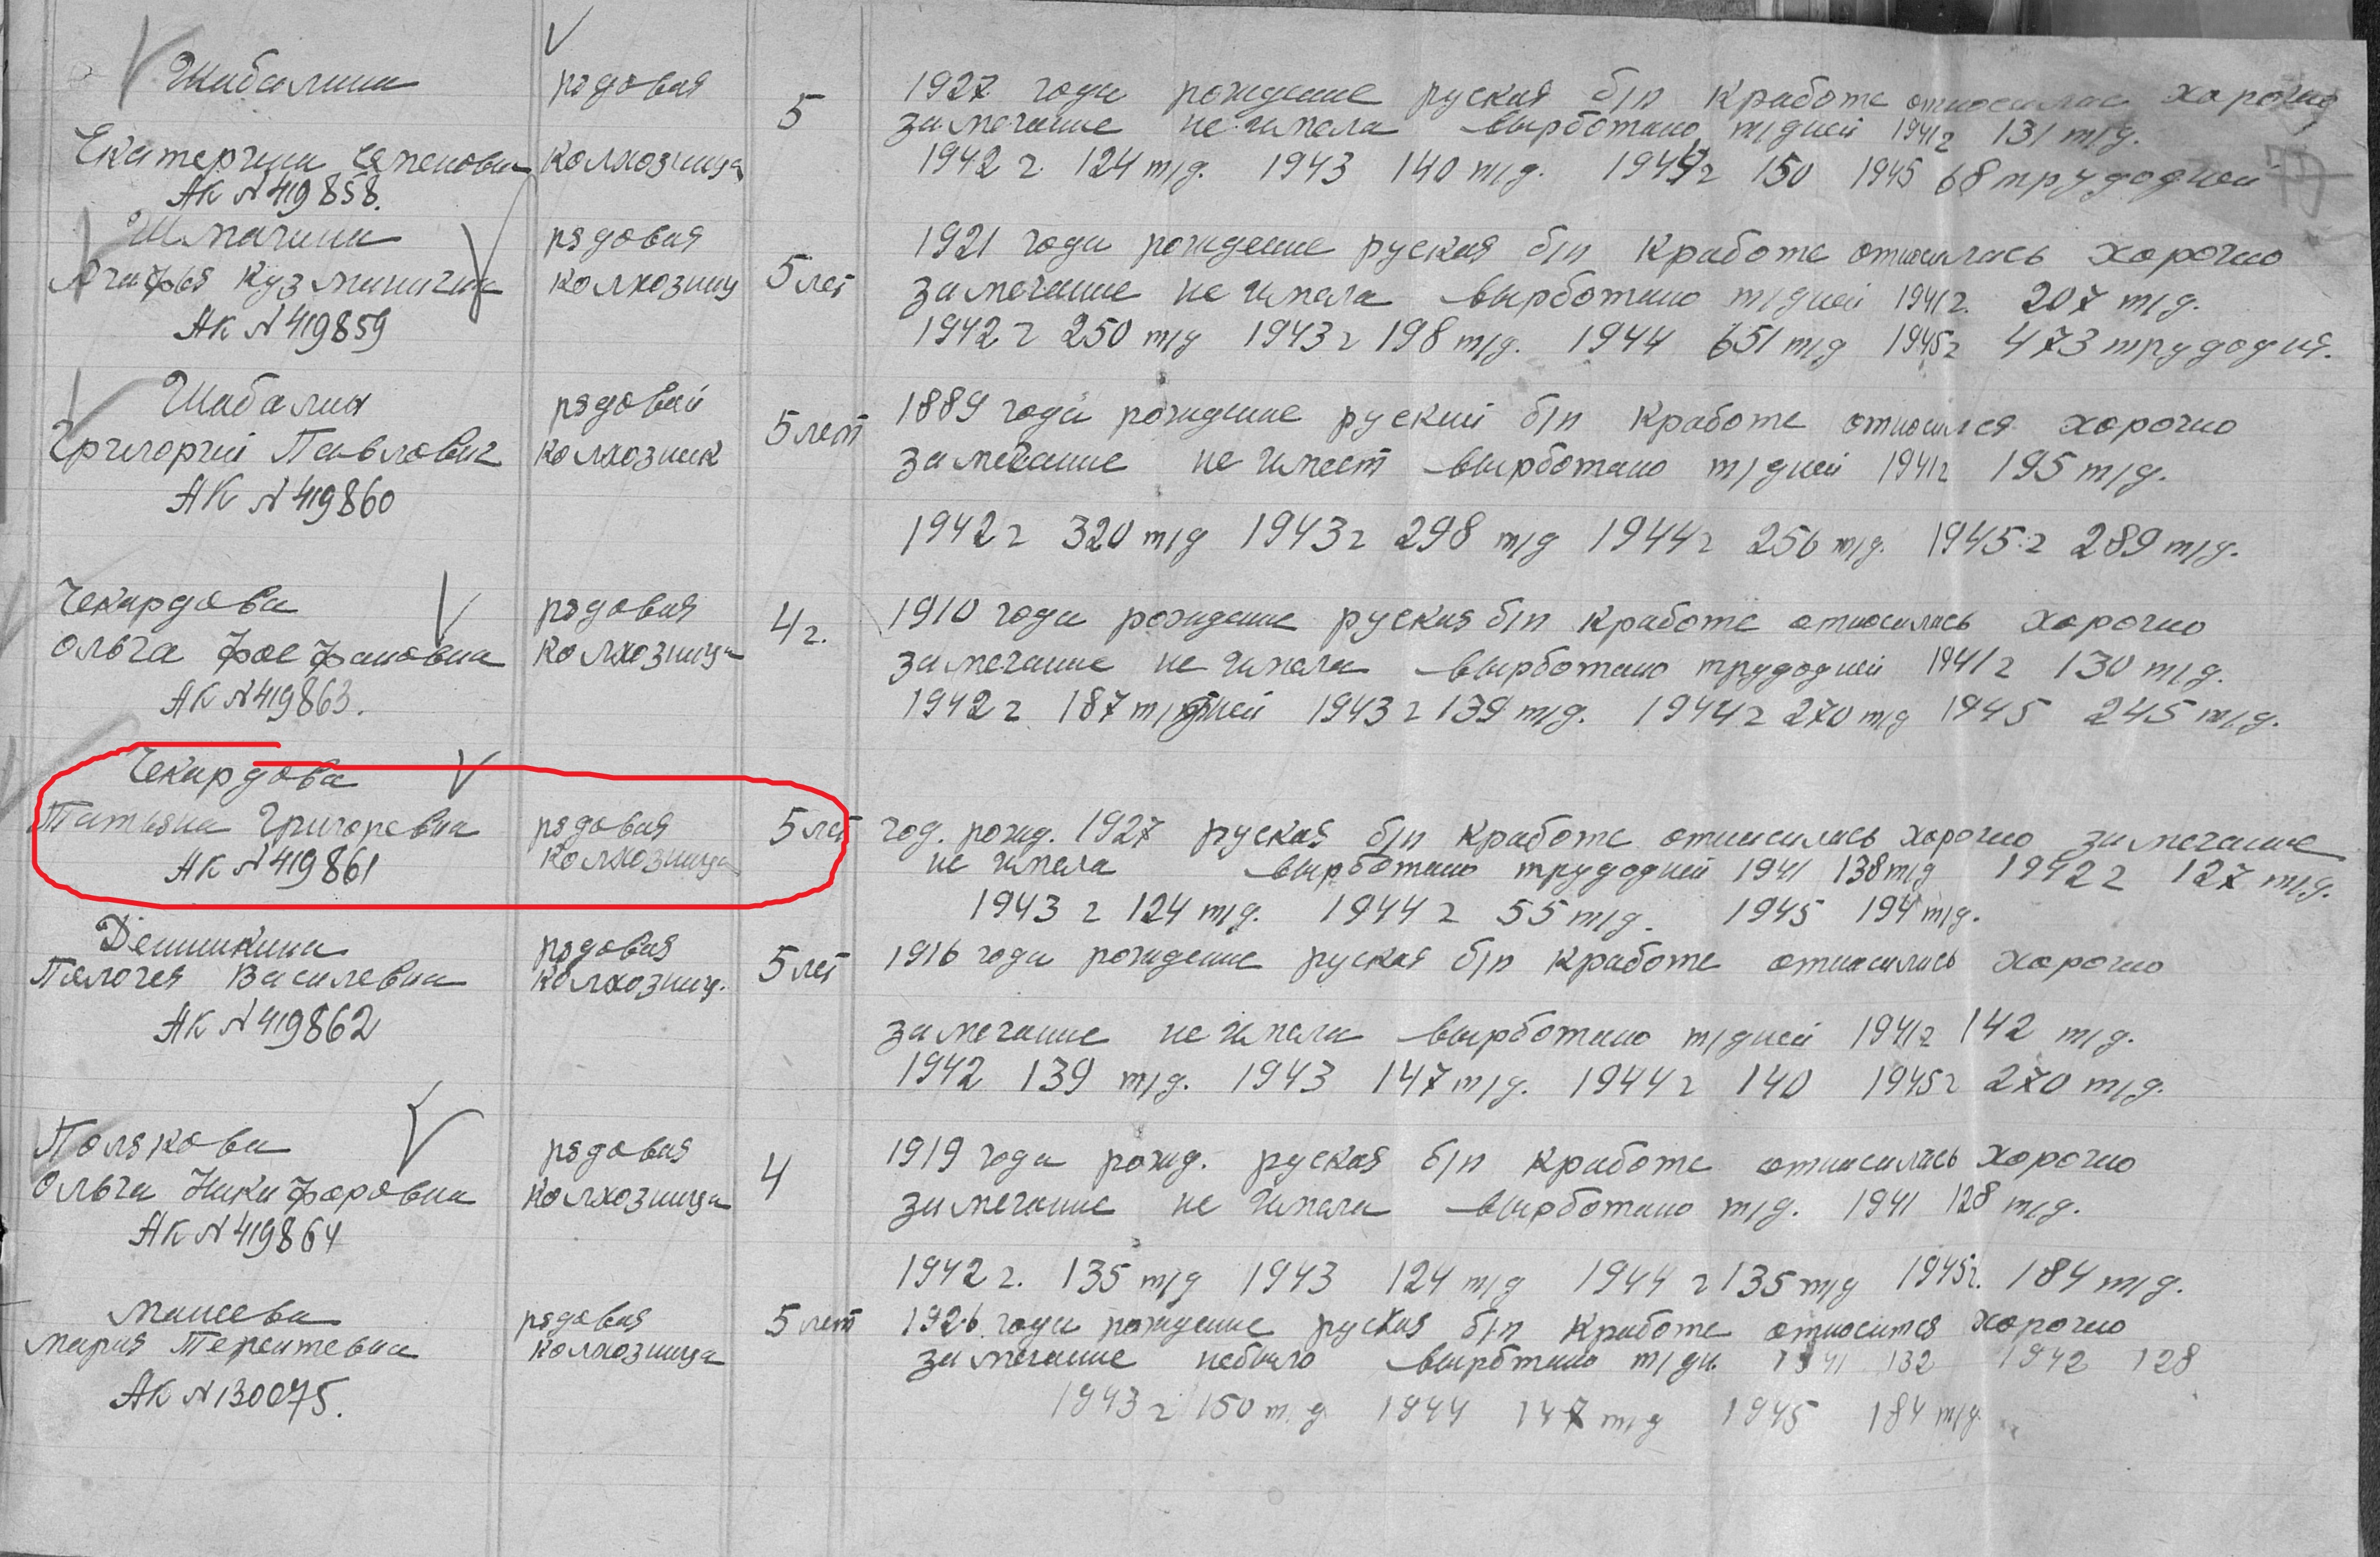 Шабалина рядовая 5 1927 года рождение руская б/п к работе относилас хорошо
замечание не имела вырботано т/дней 1941г 131 т/д.
Екатерина Семеновна колхозница 1942 г. 124 т/д. 1943 140 т/д. 1944г 150 1945 68 трудодней
АК N 419858.
Шмагина рядовая 1921 года рождение руская б/п к работе относилась хорошо
Агафья Кузминична колхозниц 5 лет замечание не имела вырботано т/дней 1941г. 207 т/д.
АК N 419859 1942 г 250 т/д 1943 г 198 т/д. 1944 651 т/д 1945г 473 трудодня.
Шабалин рядовой 5 лет 1889 года рождение руский б/п к работе относился хорошо
Григорий Павлович колхозник замечание не имеет вырботано т/дней 1941г 195 т/д.
АК N 419860
1942 г 320 т/д 1943 г 298 т/д 1944 г 256 т/д. 1945 г 289 т/д.
Чекардова рядовая 4 г. 1910 года рождение руская б/п к работе относилась хорошо
Ольга Феофановна колхозница замечание не имела вырботано трудодней 1941 г 130 т/д.
АК N 419863. 1942 г 187 т/дней 1943 г 139 т/д. 1944 г 270 т/д 1945 245 т/д.
Чекардова
Татьяна Григоревна рядовая 5 лет год. рожд. 1927 руская б/п к работе относилась хорошо замечание
АК N 419861 колхозница не имела вырботано трудодней 1941 138 т/д 1942 г 127 т/д.
1943 г 124 т/д. 1944 г 55 т/д. 1945 194 т/д.
рядовая 5 лет 1916 года рождение руская б/п к работе относилась хорошо
Палогея Василевна колхозниц.
АК N 419862 замечание не имела вырботано т/дней 1941г 142 т/д.
1942 139 т/д. 1943 147 т/д. 1944 г 140 1945г 270 т/д.
Полякова рядовая 4 1919 года рожд. руская б/п к работе относилась хорошо
Ольга Никифоровна колхозница замечание не имела вырботано т/д. 1941 128 т/д.
АК N 419864
1942 г. 135 т/д 1943 124 т/д 1944 г 135 т/д 1945г. 184 т/д.
рядовая 5 лет 1926 года рождение руская б/п к работе относится хорошо
Мария Терентевна колхозница замечание небыло вырбтано т/дн. 1941 132 1942 128
АК N 130075. 1943 г 150 т.д 1944 147 т/д 1945 184 т/д.